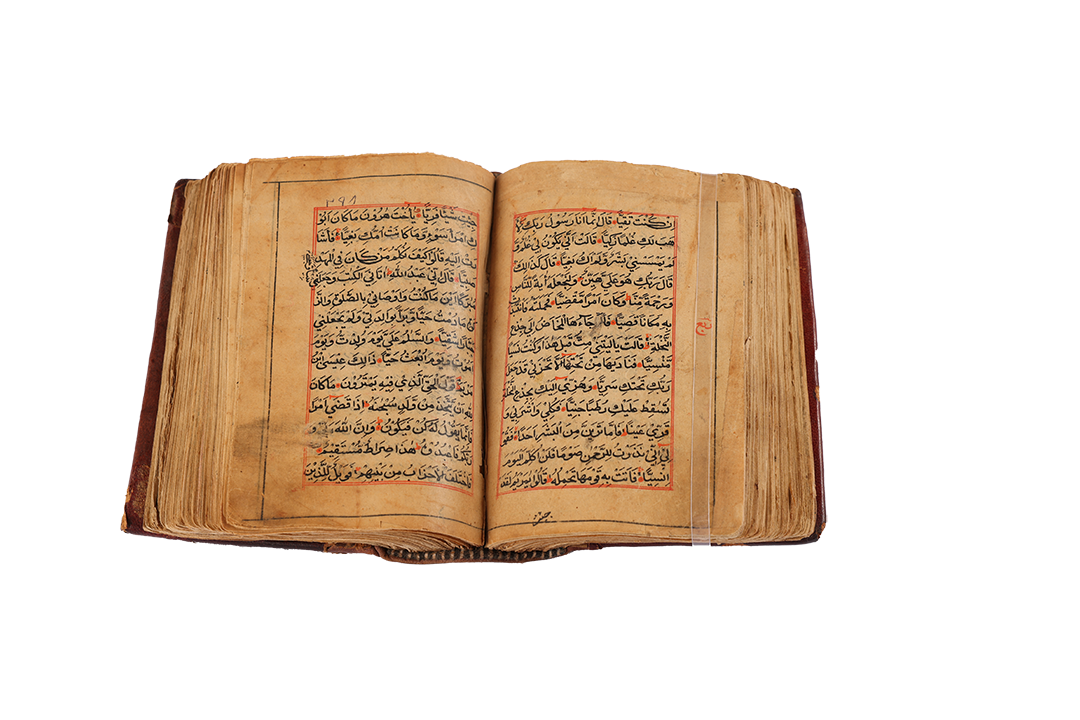 ن كُنْتَ تَقِيًّا قَالَ اِنَّمَا اَنَا رَسُوْلُ رَبِّكِ لِاَ
هَبَ لَكِ غُلٰمًا زَكِيًّا قَالَتْ اَنّٰى يَكُوْنُ لِيْ غُلٰمٌ وَ
لَمْ يَمْسَسْنِيْ بَشَرٌ وَلَمْ اَكُ بَغِيًّا قَالَ كَذَالِكِ
قَالَ رَبُّكِ هُوَ عَلَيَّ هَيِّنٌ وَلِنَجْعَلَهُ اٰيَةً لِلنَّاسِ
وَرَحْمَةً مِّنَّا وَكَانَ اَمْرًا مَّقْضِيًّا فَحَمَلَتْهُ فَانْتَبَذَتْ
بِهِ مَكَانًا قَصِيًّا فَاَجَاءَهَا الْمَخَاضُ اِلٰى جِذْعِ
النَّخْلَةِ قَالَتْ يَا لَيْتَنِيْ مِتُّ قَبْلَ هٰذَا وَكُنْتُ نَسْيًا
مَنْسِيًّا فَنَادٰىهَا مِنْ تَحْتِهَا اَلَّا تَحْزَنِيْ قَدْ جَعَلَ
رَبُّكِ تَحْتَكِ سَرِيًّا وَهُزِّيْ اِلَيْكِ بِجِذْعِ النَّخْلَةِ
تُسٰقِطْ عَلَيْكِ رُطَبًا جَنِيًّا فَكُلِيْ وَاشْرَبِيْ وَ
قَرِّيْ عَيْنًا فَاِمَّا تَرَيِنَّ مِنَ الْبَشَرِ اَحَدًا فَقُوْ
لِيْ اِنِّيْ نَذَرْتُ لِلرَّحْمٰنِ صَوْمًا فَلَنْ اُكَلِّمَ الْيَوْمَ
اِنْسِيًّا فَاَتَتْ بِهِ قَوْمَهَا تَحْمِلُهُ قَالُوْا يٰمَرْيَمُ لَقَدْ
جئت
٣٩٨
جِئْتِ شَيْئًا فَرِيًّا يٰاُخْتَ هٰرُوْنَ مَا كَانَ اَبُوْ
كِ امْرَاَ سَوْءٍ وَمَا كَانَتْ اُمُّكِ بَغِيًّا فَاَشَا
رَتْ اِلَيْهِ قَالُوْا كَيْفَ نُكَلِّمُ مَنْ كَانَ فِي الْمَهْدِ
صَبِيًّا قَالَ اِنِّيْ عَبْدُ اللهِ اٰتَانِيَ الْكِتٰبَ وَجَعَلَنِيْ
مُبٰرَكًا اَيْنَ مَا كُنْتُ وَاَوْصَانِيْ بِالصَّلٰوةِ وَالزَّ
كٰوةِ مَا دُمْتُ حَيًّا وَبَرًّا بِوَالِدَتِيْ وَلَمْ يَجْعَلْنِيْ
جَبَّارًا شَقِيًّا وَالسَّلٰمُ عَلَيَّ يَوْمَ وُلِدْتُ وَيَوْمَ
اَمُوْتُ وَيَوْمَ اُبْعَثُ حَيًّا ذَالِكَ عِيْسَى ابْنُ
مَرْيَمَ قَوْلَ الْحَقِّ الَّذِيْ فِيْهِ يَمْتَرُوْنَ مَا كَانَ
لِلّٰهِ اَنْ يَتَّخِذَ مِنْ وَلَدٍ سُبْحٰنَهُ اِذَا قَضٰى اَمْرًا
فَاِنَّمَا يَقُوْلُ لَهُ كُنْ فَيَكُوْنُ وَاِنَّ اللهَ رَبِّيْ وَ
رَبُّكُمْ فَاعْبُدُوْهُ هٰذَا صِرَاطٌ مُّسْتَقِيْمٌ
فَاخْتَلَفَ الْاَحْزَابُ مِنْ بَيْنِهِمْ فَوَيْلٌ لِّلَّذِيْنَ